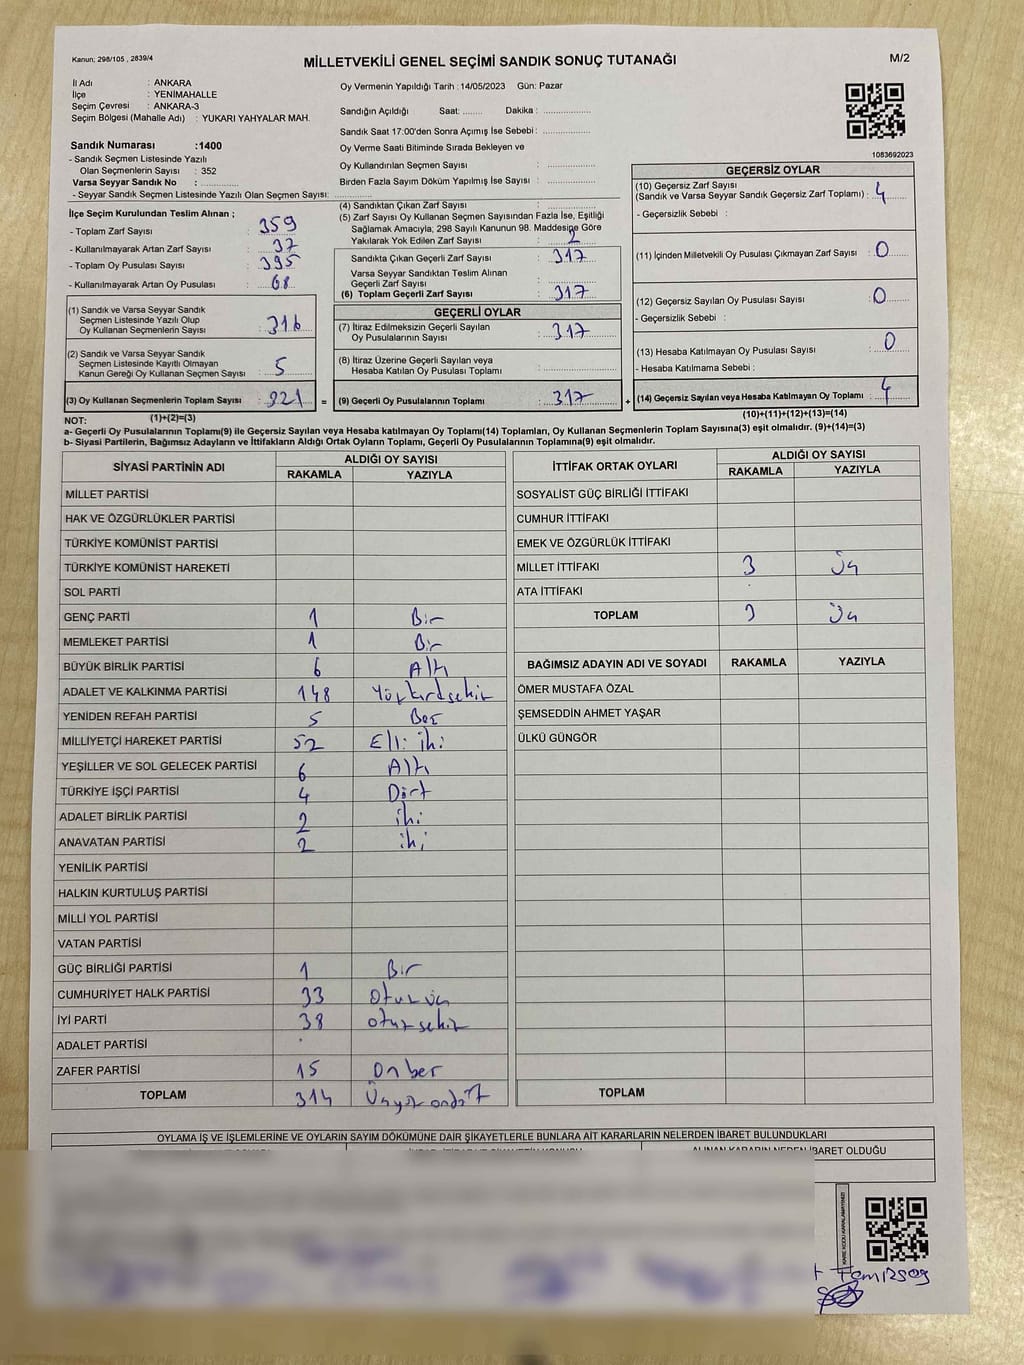 Kanun; 298/105 , 2839/4
MİLLETVEKİLİ GENEL SEÇİMİ SANDIK SONUÇ TUTANAĞI
M/2
İl Adı : ANKARA
İlçe : YENİMAHALLE
Seçim Çevresi : ANKARA-3
Seçim Bölgesi (Mahalle Adı) : YUKARI YAHYALAR MAH.
Sandık Numarası :1400
- Sandık Seçmen Listesinde Yazılı
Olan Seçmenlerin Sayısı : 352
Varsa Seyyar Sandık No : ............
- Seyyar Sandık Seçmen Listesinde Yazılı Olan Seçmen Sayısı: ............
Oy Vermenin Yapıldığı Tarih : 14/05/2023 Gün: Pazar
Sandığın Açıldığı Saat: ....... Dakika : ...............
Sandık Saat 17:00'den Sonra Açımış İse Sebebi : ...............
Oy Verme Saati Bitiminde Sırada Bekleyen ve
Oy Kullandırılan Seçmen Sayısı : ...............
Birden Fazla Sayım Döküm Yapılmış İse Sayısı : ...............
1083692023
İlçe Seçim Kurulundan Teslim Alınan ;
- Toplam Zarf Sayısı : 359
- Kullanılmayarak Artan Zarf Sayısı : 37
- Toplam Oy Pusulası Sayısı : 395
- Kullanılmayarak Artan Oy Pusulası : 68
(1) Sandık ve Varsa Seyyar Sandık
Seçmen Listesinde Yazılı Olup
Oy Kullanan Seçmenlerin Sayısı : 316
(2) Sandık ve Varsa Seyyar Sandık
Seçmen Listesinde Kayıtlı Olmayan
Kanun Gereği Oy Kullanan Seçmen Sayısı : 5
(3) Oy Kullanan Seçmenlerin Toplam Sayısı : 321 =
(4) Sandıktan Çıkan Zarf Sayısı : ...............
(5) Zarf Sayısı Oy Kullanan Seçmen Sayısından Fazla İse, Eşitliği
Sağlamak Amacıyla; 298 Sayılı Kanunun 98. Maddesine Göre
Yakılarak Yok Edilen Zarf Sayısı : 2
Sandıkta Çıkan Geçerli Zarf Sayısı : 317
Varsa Seyyar Sandıktan Teslim Alınan
Geçerli Zarf Sayısı : ...............
(6) Toplam Geçerli Zarf Sayısı : 317
GEÇERLİ OYLAR
(7) İtiraz Edilmeksizin Geçerli Sayılan
Oy Pusulalarının Sayısı : 317
(8) İtiraz Üzerine Geçerli Sayılan veya
Hesaba Katılan Oy Pusulası Toplamı : ...............
(9) Geçerli Oy Pusulalarının Toplamı : 317 +
GEÇERSİZ OYLAR
(10) Geçersiz Zarf Sayısı
(Sandık ve Varsa Seyyar Sandık Geçersiz Zarf Toplamı) : 4
- Geçersizlik Sebebi :
(11) İçinden Milletvekili Oy Pusulası Çıkmayan Zarf Sayısı : 0
(12) Geçersiz Sayılan Oy Pusulası Sayısı : 0
- Geçersizlik Sebebi :
(13) Hesaba Katılmayan Oy Pusulası Sayısı : 0
- Hesaba Katılmama Sebebi :
(14) Geçersiz Sayılan veya Hesaba Katılmayan Oy Toplamı : 4
NOT: (1)+(2)=(3)
(10)+(11)+(12)+(13)=(14)
a- Geçerli Oy Pusulalarının Toplamı(9) ile Geçersiz Sayılan veya Hesaba Katılmayan Oy Toplamı(14) Toplamları, Oy Kullanan Seçmenlerin Toplam Sayısına(3) eşit olmalıdır. (9)+(14)=(3)
b- Siyasi Partilerin, Bağımsız Adayların ve İttifakların Aldığı Ortak Oyların Toplamı, Geçerli Oy Pusulalarının Toplamına(9) eşit olmalıdır.
SİYASİ PARTİNİN ADI ALDIĞI OY SAYISI
RAKAMLA YAZIYLA
MİLLET PARTİSİ
HAK VE ÖZGÜRLÜKLER PARTİSİ
TÜRKİYE KOMÜNİST PARTİSİ
TÜRKİYE KOMÜNİST HAREKETİ
SOL PARTİ
GENÇ PARTİ 1 Bir
MEMLEKET PARTİSİ 1 Bir
BÜYÜK BİRLİK PARTİSİ 6 Altı
ADALET VE KALKINMA PARTİSİ 148 Yüzkırksekiz
YENİDEN REFAH PARTİSİ 5 Beş
MİLLİYETÇİ HAREKET PARTİSİ 52 Elli iki
YEŞİLLER VE SOL GELECEK PARTİSİ 6 Altı
TÜRKİYE İŞÇİ PARTİSİ 4 Dört
ADALET BİRLİK PARTİSİ 2 iki
ANAVATAN PARTİSİ 2 iki
YENİLİK PARTİSİ
HALKIN KURTULUŞ PARTİSİ
MİLLİ YOL PARTİSİ
VATAN PARTİSİ
GÜÇ BİRLİĞİ PARTİSİ 1 Bir
CUMHURİYET HALK PARTİSİ 33 Otuzüç
İYİ PARTİ 38 otuzsekiz
ADALET PARTİSİ
ZAFER PARTİSİ 15 Onbeş
TOPLAM 314 Üçyüzondört
İTTİFAK ORTAK OYLARI ALDIĞI OY SAYISI
RAKAMLA YAZIYLA
SOSYALİST GÜÇ BİRLİĞİ İTTİFAKI
CUMHUR İTTİFAKI
EMEK VE ÖZGÜRLÜK İTTİFAKI
MİLLET İTTİFAKI 3 Üç
ATA İTTİFAKI
TOPLAM 3 Üç
BAĞIMSIZ ADAYIN ADI VE SOYADI RAKAMLA YAZIYLA
ÖMER MUSTAFA ÖZAL
ŞEMSEDDİN AHMET YAŞAR
ÜLKÜ GÜNGÖR
TOPLAM
OYLAMA İŞ VE İŞLEMLERİNE VE OYLARIN SAYIM DÖKÜMÜNE DAİR ŞİKAYETLERLE BUNLARA AİT KARARLARIN NELERDEN İBARET BULUNDUKLARI
ALINAN KARARIN NEDEN İBARET OLDUĞU
KARE KODU KARALAMAYINIZ!